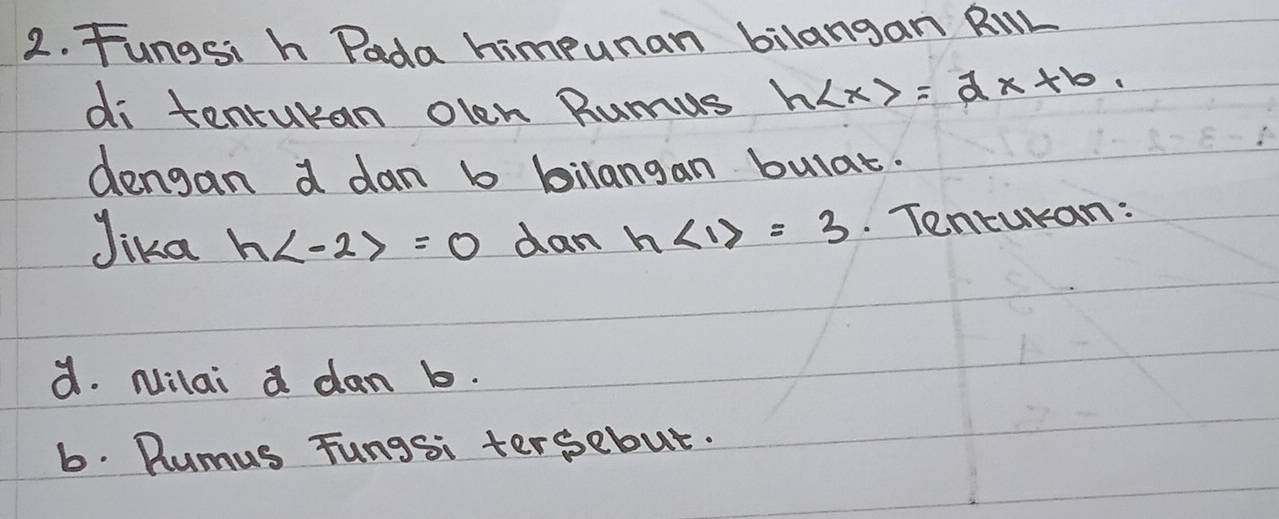 2. Fungsi h Pada himpunan bilangan RIIL
di tentukan Oleh Rumus h<x> = ax + b,
dengan a dan b bilangan bulat.
Jika h<-2> = 0 dan h<1> = 3. Tentukan:
a. Nilai a dan b.
b. Rumus Fungsi tersebut.